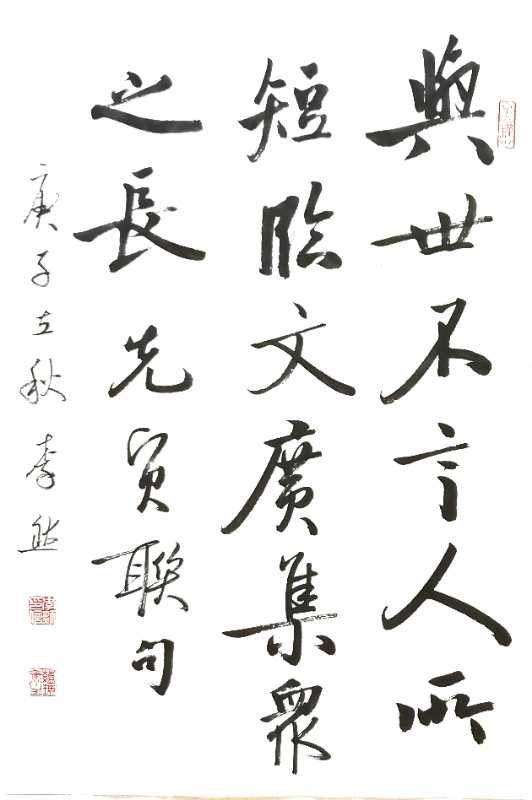 與世不言人所
短臨文廣集眾
之長先賢聯句
庚子立秋李然